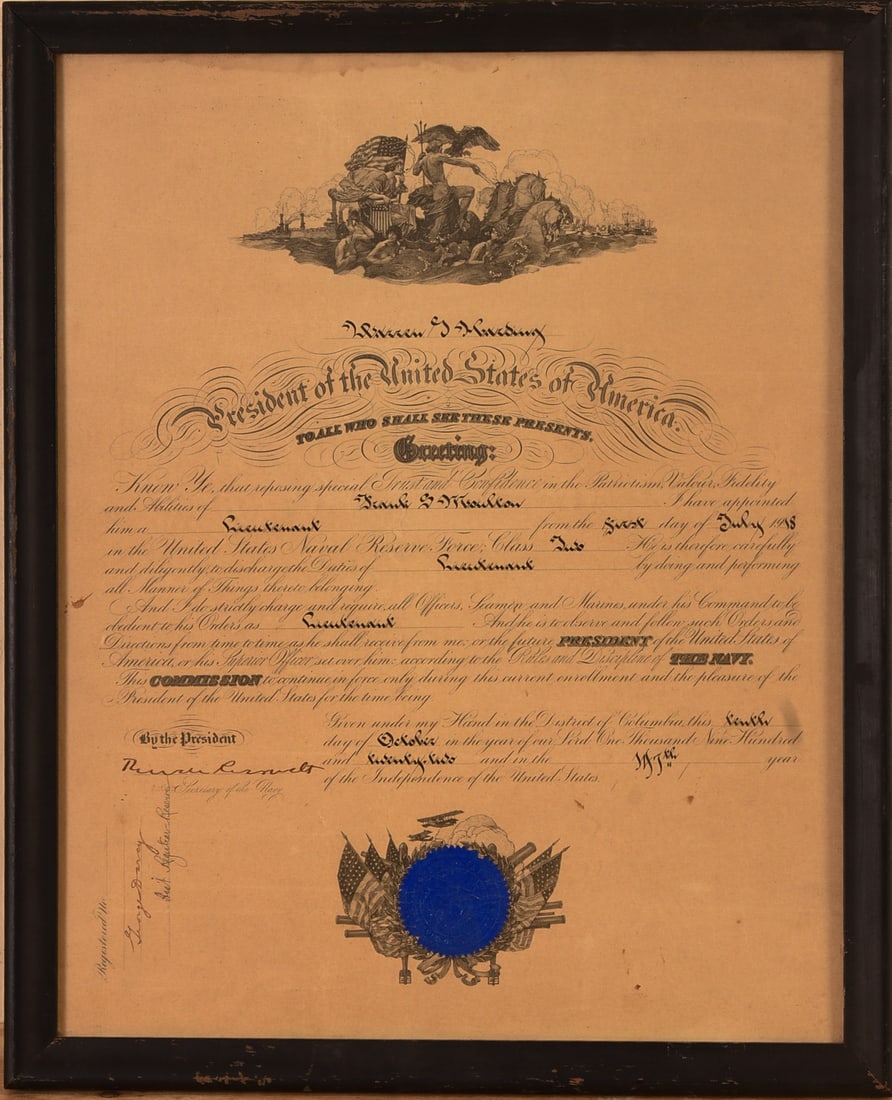 Warren G Harding
President of the United States of America.
TO ALL WHO SHALL SEE THESE PRESENTS,
Greeting:
Know Ye, that reposing special Trust and Confidence in the Patriotism, Valour, Fidelity
and Abilities of Frank G Moulton I have appointed
him a Lieutenant from the first day of July 1918
in the United States Naval Reserve Force, Class Two He is therefore carefully
and diligently to discharge the Duties of Lieutenant by doing and performing
all Manner of Things thereto belonging.
And I do strictly charge and require all Officers, Seamen and Marines, under his Command to be
obedient to his Orders as Lieutenant And he is to observe and follow such Orders and
Directions from time to time as he shall receive from me, or the future PRESIDENT of the United States of
America, or his Superior Officer set over him, according to the Rules and Discipline of THE NAVY.
This COMMISSION to continue in force only during this current enrollment and the pleasure of the
President of the United States for the time being.
Given under my Hand in the District of Columbia, this tenth
day of October in the year of our Lord One Thousand Nine Hundred
and twenty-two and in the 147th year
of the Independence of the United States.
By the President
Theodore Roosevelt
Secretary of the Navy.
Registered No.
George